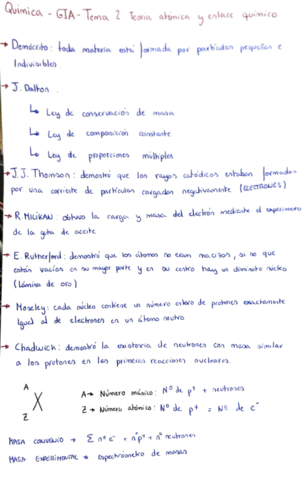 Química - GIA - Tema 2 Teoría atómica y enlace químico
→ Demócrito: toda materia está formada por partículas pequeñas e
Indivisibles.
→ J. Dalton.
↳ Ley de conservación de masa
↳ Ley de composición constante
↳ Ley de proporciones múltiples
→ J.J. Thomson: demostró que los rayos catódicos estaban formados
por una corriente de partículas cargadas negativamente (ELECTRONES)
→ R. Milikan: obtuvo la carga y masa del electrón mediante el experimento
de la gota de aceite
→ E. Rutherford: demostró que los átomos no eran macizos, si no que
están vacíos en su mayor parte y en su centro hay un diminuto núcleo
(Lámina de oro)
→ Moseley: cada núcleo contiene un número entero de protones exactamente
igual al de electrones en un átomo neutro
→ Chadwick: demostró la existencia de neutrones con masa similar
a los protones en las primeras reacciones nucleares.
A
X
Z
A → Número másico: Nº de p⁺ + neutrones
Z → Número atómico: Nº de p⁺ = Nº de e⁻
MASA CONVENIO → Σ nº e⁻ + nº p⁺ + nº neutrones
MASA EXPERIMENTAL → espectrómetro de masas